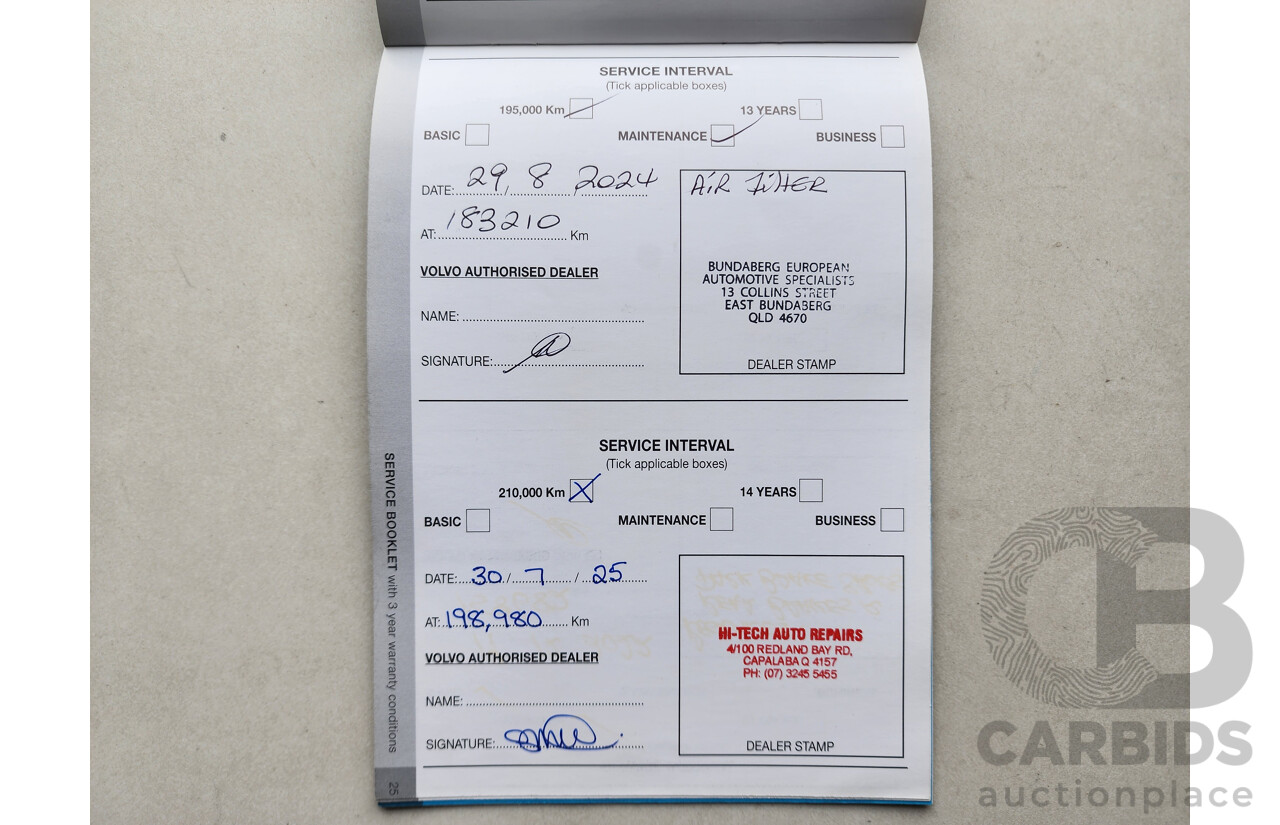 SERVICE INTERVAL
(Tick applicable boxes)
195,000 Km 13 YEARS
BASIC MAINTENANCE BUSINESS
DATE: 29 / 8 / 2024
AT: 183210 Km
VOLVO AUTHORISED DEALER
NAME:
SIGNATURE:
AIR FILTER
BUNDABERG EUROPEAN
AUTOMOTIVE SPECIALISTS
13 COLLINS STREET
EAST BUNDABERG
QLD 4670
DEALER STAMP
SERVICE INTERVAL
(Tick applicable boxes)
210,000 Km 14 YEARS
BASIC MAINTENANCE BUSINESS
DATE: 30 / 7 / 25
AT: 198,980 Km
VOLVO AUTHORISED DEALER
NAME:
SIGNATURE:
HI-TECH AUTO REPAIRS
4/100 REDLAND BAY RD,
CAPALABA Q 4157
PH: (07) 3245 5455
DEALER STAMP
SERVICE BOOKLET with 3 year warranty conditions
25
CB
CARBIDS
auctionplace